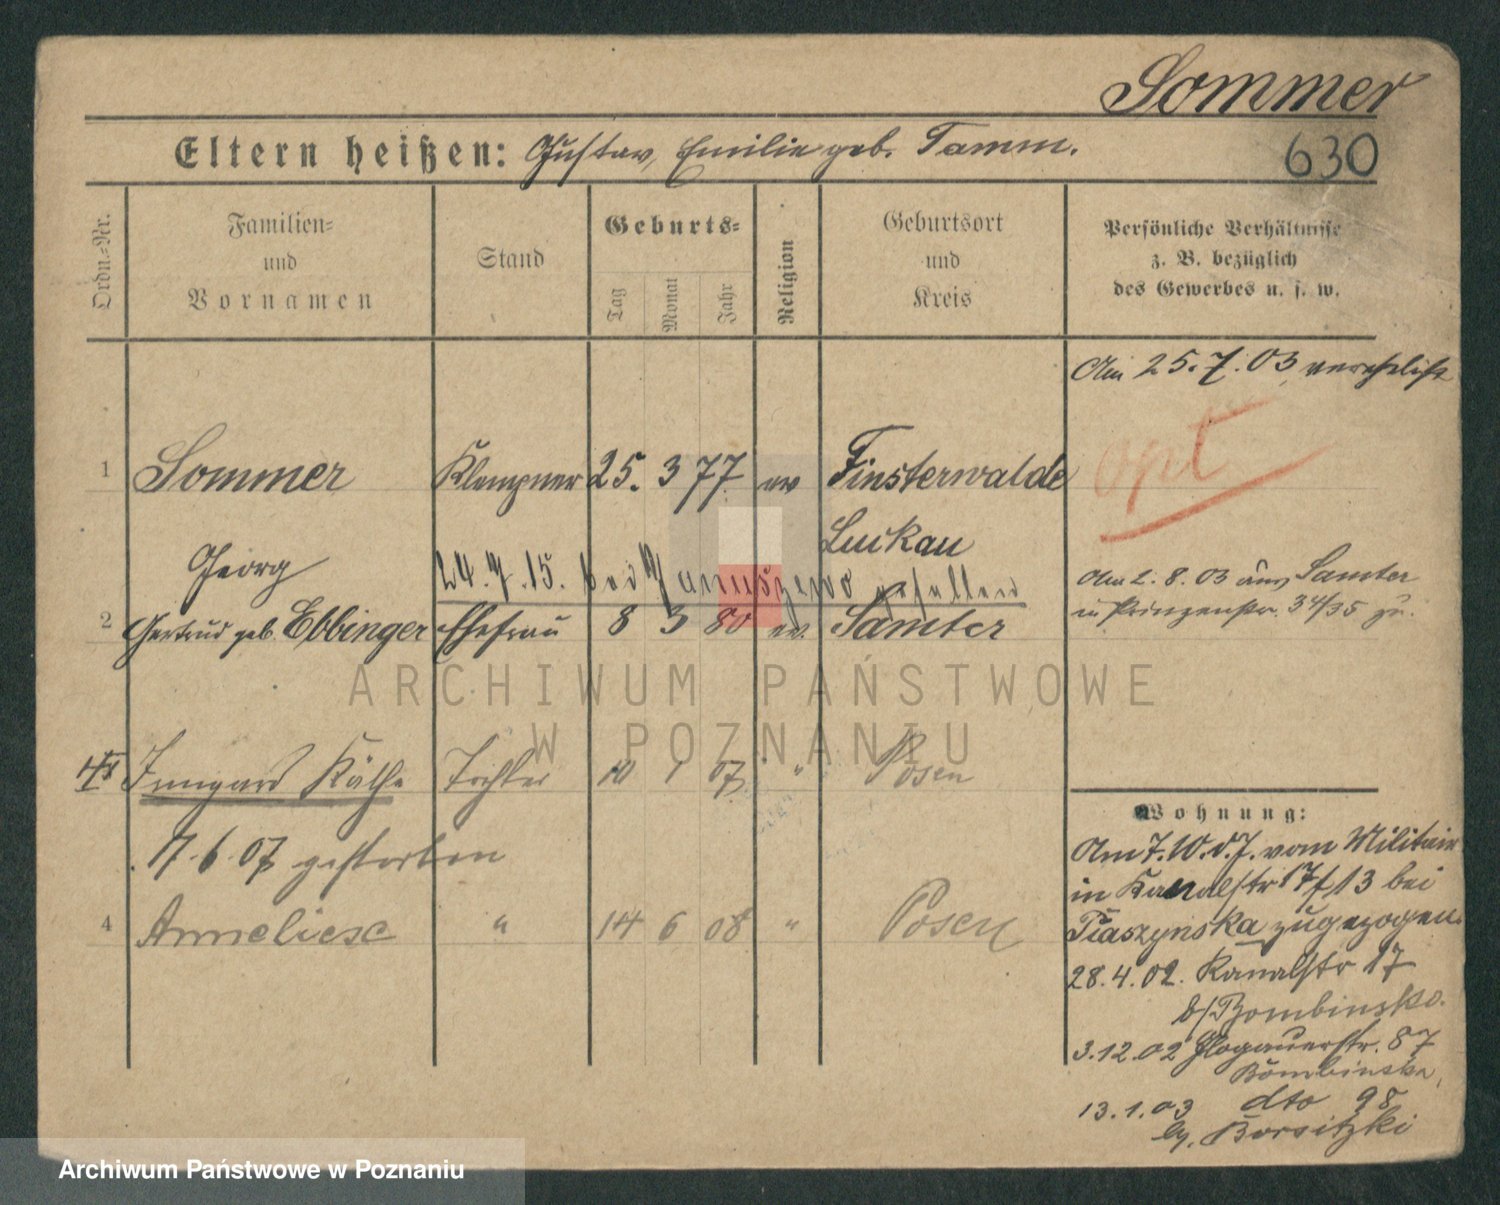 Sommer
Eltern heißen: Gustav, Emilie geb. Tamm.
630
Ordn.-Nr.
Familien-
und
Vornamen
Stand
Geburts-
Tag
Monat
Jahr
Religion
Geburtsort
und
Kreis
Persönliche Verhältnisse
z. B. bezüglich
des Gewerbes u. s. w.
Am 25.7.03 verehelicht
1 Sommer Klempner 25. 3 77 ev Finsterwalde
opt
Luckau
Georg
24.7.15. bei Januszewo gefallen
Am 2.8.03 aus Samter
in Prinzenstr. 34/35 zu.
2 Gertrud geb. Ebbinger Ehefrau 8 3 80 ev. Samter
ARCHIWUM PAŃSTWOWE
W POZNANIU
Irmgard Käthe Tochter 10 1 07 " Posen
17.6.07 gestorben
4 Anneliese " 14 6 08 " Posen
Wohnung:
Am 7.10.d.J. vom Militair
in Kanalstr 17/13 bei
Ptaszynska zugezogen.
28.4.02. Kanalstr 17
b/Bombinsko.
3.12.02 Glogauerstr. 87
Bombinska,
13.1.03 dto 98
by. Borsitzki
Archiwum Państwowe w Poznaniu